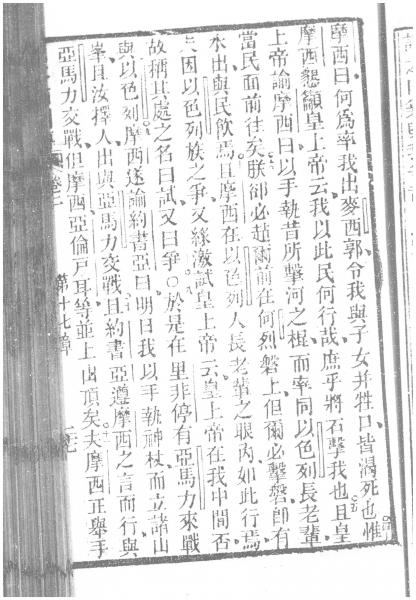 摩西曰何爲率我出麥西郭令我與子女并牲口皆渴死也惟
摩西懇籲皇上帝云我以此民何行哉庶乎將石擊我也且皇
上帝諭摩西曰以手執昔所擊河之棍而率同以色列長老輩
當民面前往矣朕卻必趂爾前在何烈磐上但爾必擊磐卽有
水出與民飲焉且摩西在以色列人長老輩之眼內如此行焉
夫因以色列族之爭又緣激試皇上帝云皇上帝在我中間否
故稱其處之名曰試又曰爭○於是在里非停有亞馬力來戰
與以色列摩西遂諭約書亞曰明日我以手執神杖而立諸山
峯且汝擇人出與亞馬力交戰且約書亞遵摩西之言而行與
亞馬力交戰但摩西亞倫戶耳等並上山頂矣夫摩西正舉手
卷二
第十七章